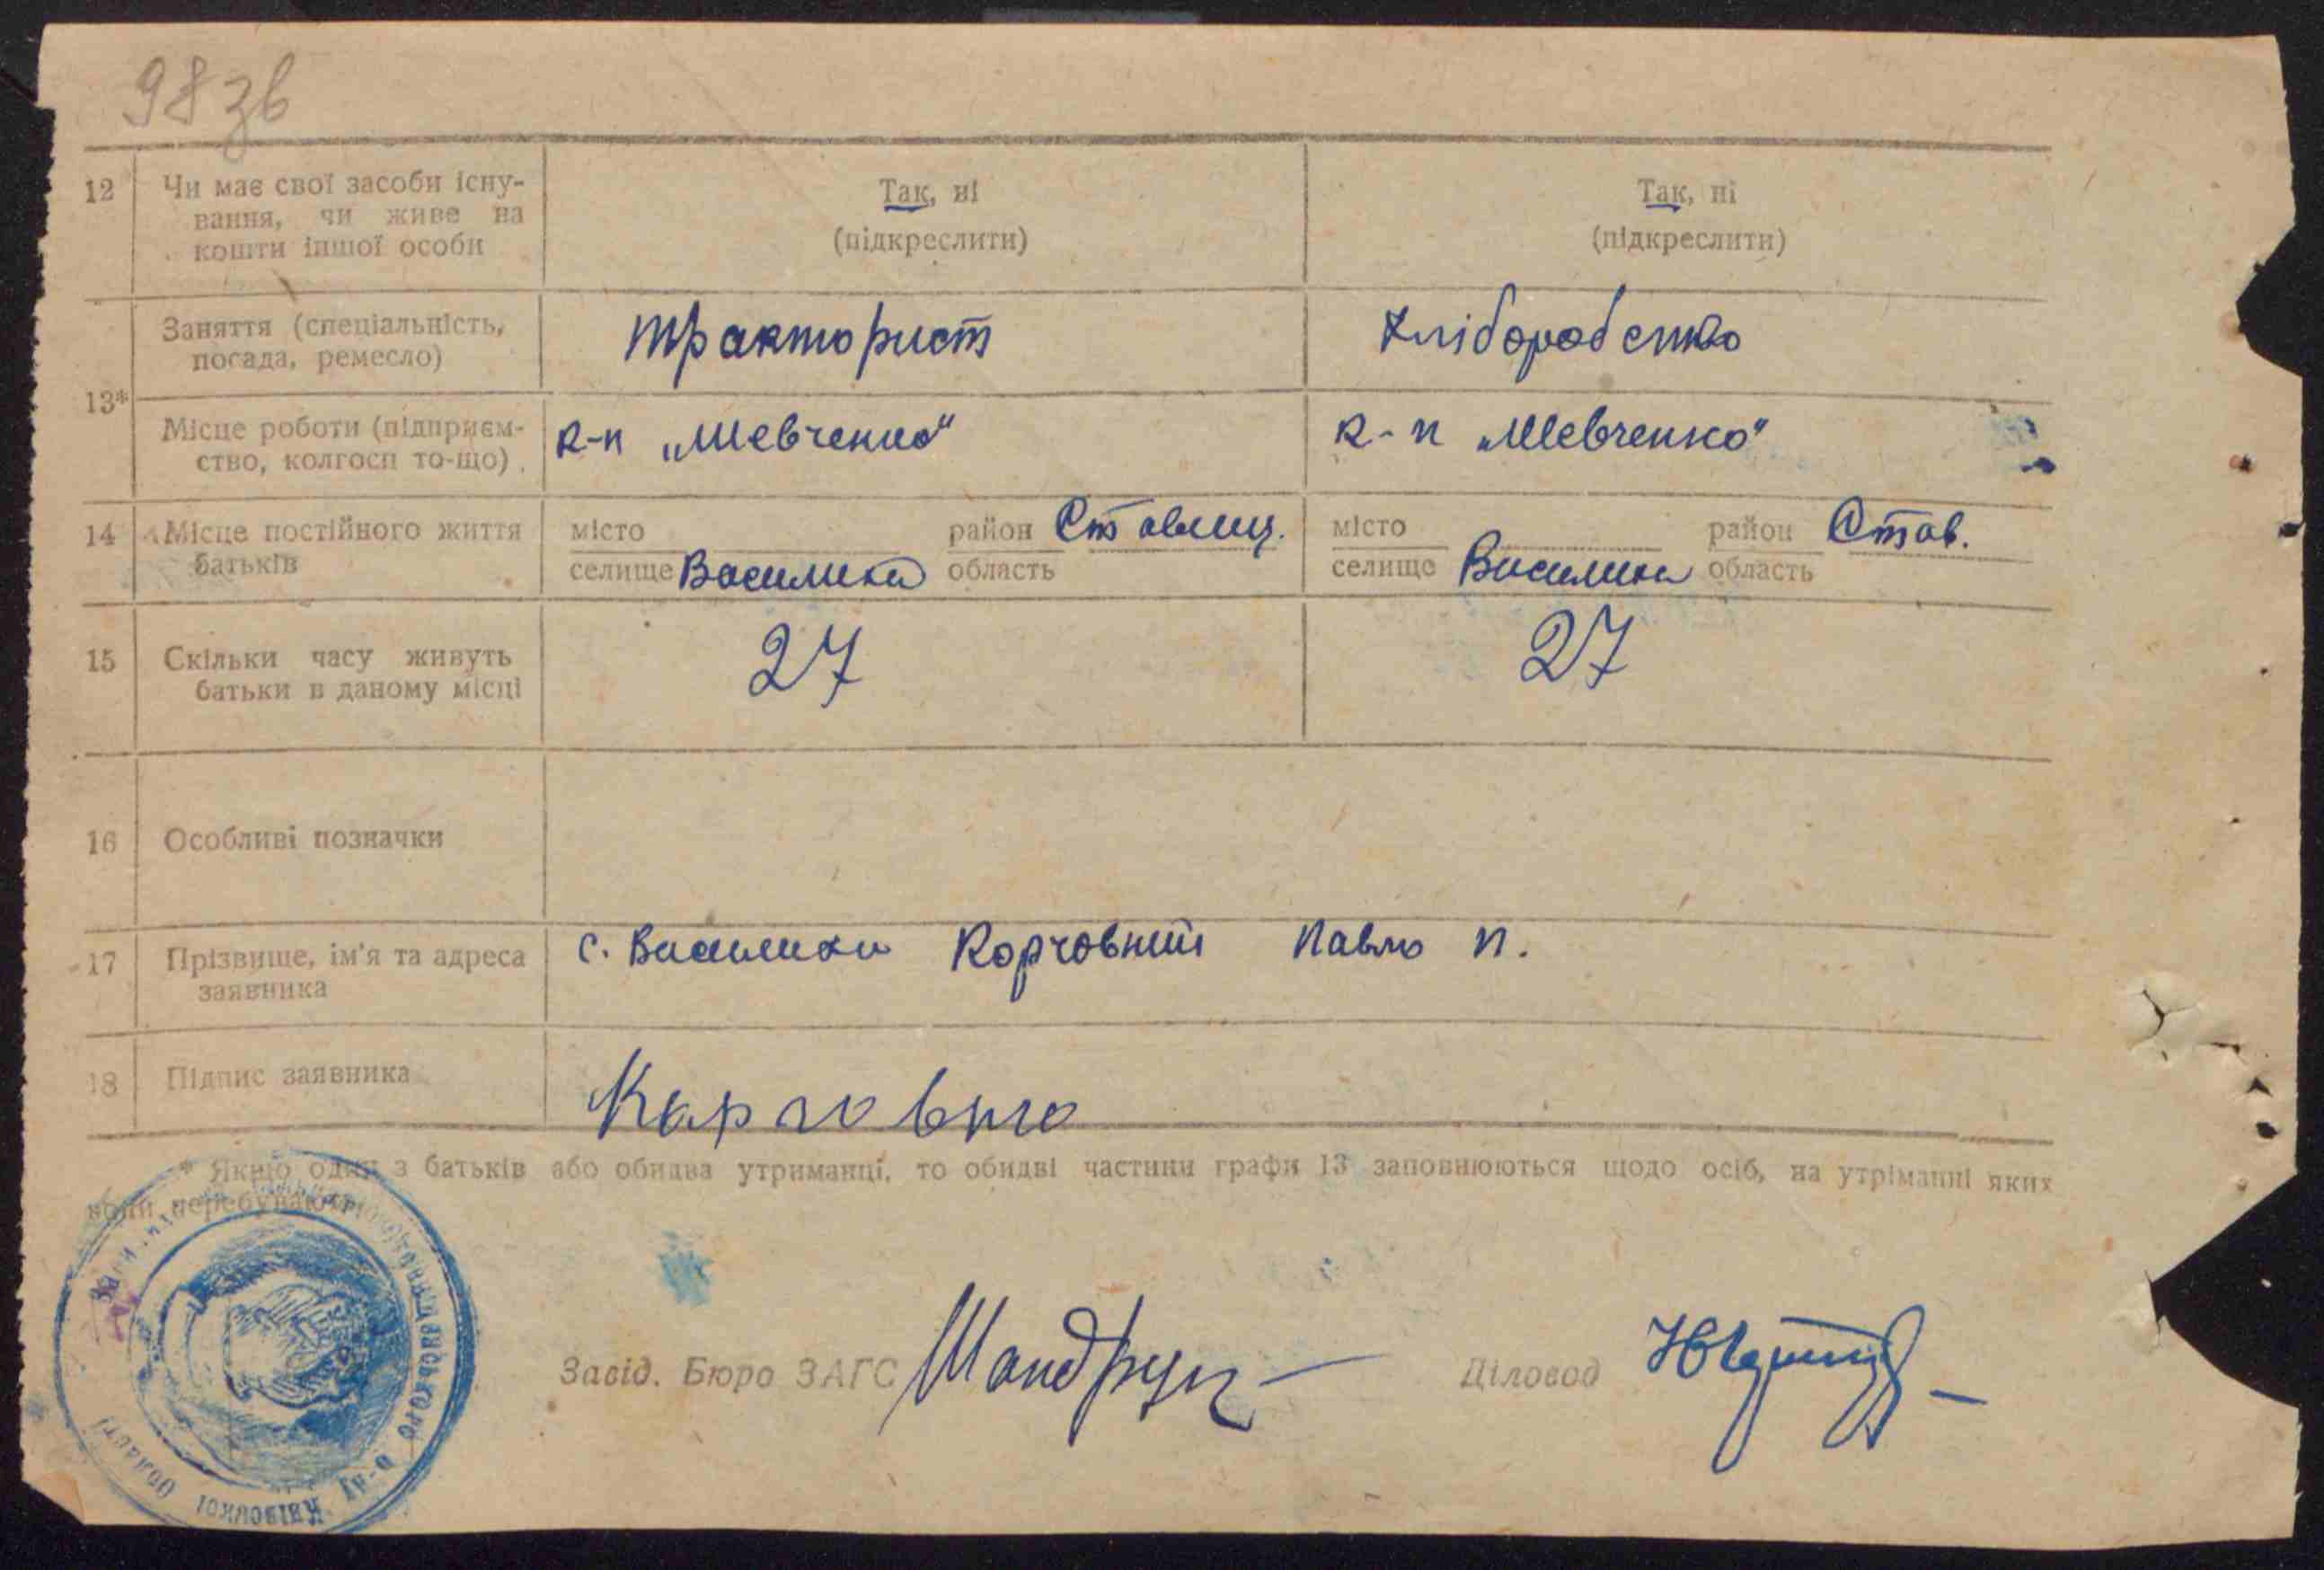 98 зв
12 Чи має свої засоби існу-
вання, чи живе на
кошти іншої особи
Так, ні
(підкреслити)
Так, ні
(підкреслити)
13*
Заняття (спеціальність,
посада, ремесло)
тракторист
хліборобство
Місце роботи (підприєм-
ство, колгосп то-що)
к-п „Шевченко"
к-п „Шевченко"
14 Місце постійного життя
батьків
місто район Ставищ.
селище Василиха область
місто район Став.
селище Василиха область
15 Скільки часу живуть
батьки в даному місці
27
27
16 Особливі позначки
17 Прізвище, ім'я та адреса
заявника
с. Василиха Корчовний Павло П.
18 Підпис заявника
* Якщо один з батьків або обидва утриманці, то обидві частини графи 13 заповнюються щодо осіб, на утріманні яких
вони перебувають
Завід. Бюро ЗАГС Шандрук
Діловод
Київської області